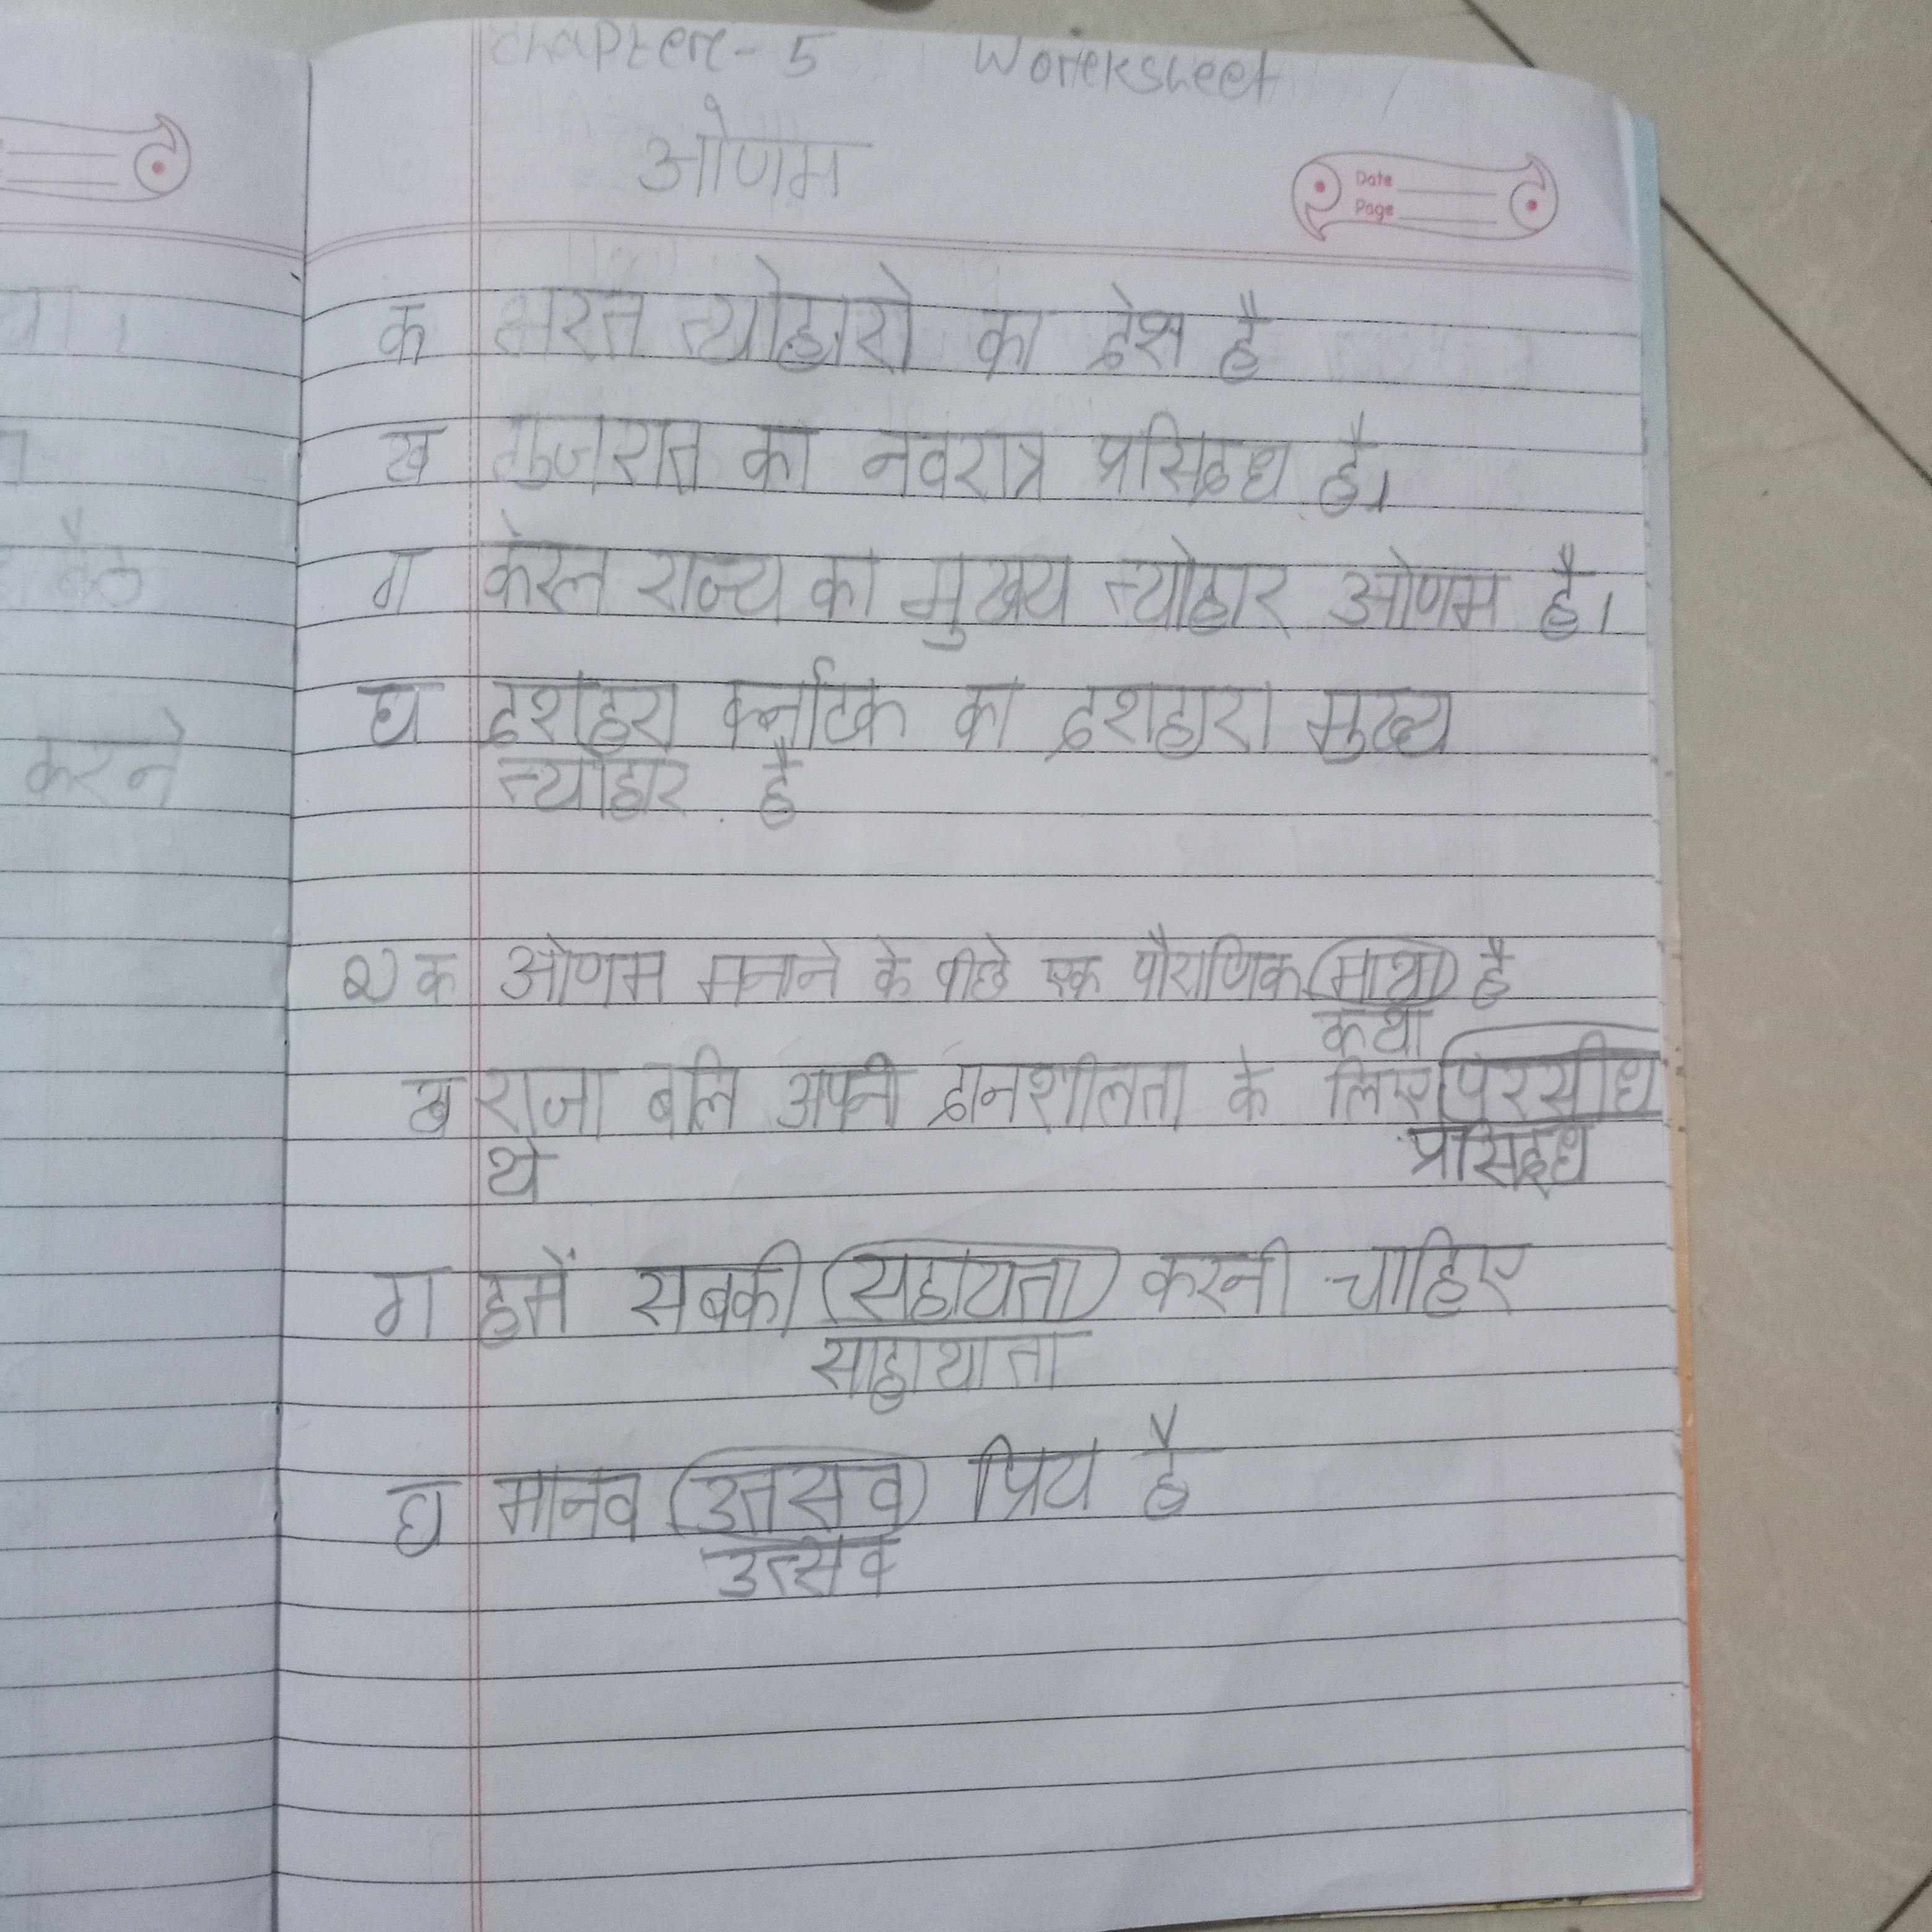 chapter - 5 Worksheet
ओणम
Date
Page
क भारत त्योहारो का देश है
ख गुजरात का नवरात्र प्रसिदध है।
ग केरल राज्य का मुख्य त्योहार ओणम है।
घ दशहरा कर्नाटक का दशहारा मुख्य
त्योहार है
२) क ओणम मनाने के पीछे एक पौराणिक है
कथा
ख राजा बलि अपनी दानशीलता के लिए परिसीध
थे प्रसिदध
ग हमें सबकी (सहायता) करनी चाहिए
साहायाता
घ मानव (उतसव) प्रिय है
उत्सव
करने